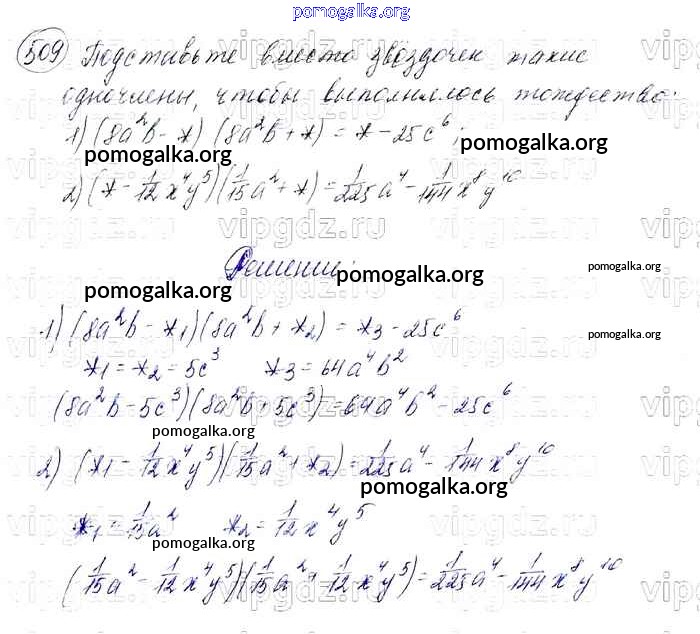 pomogalka.org
509 Подставьте вместо звёздочек такие
одночлены, чтобы выполнялось тождество:
1) (8a²b - *) (8a²b + *) = * - 25c⁶;
pomogalka.org pomogalka.org
2) (* - 1/12 x⁴y⁵)(1/15 a² + *) = 1/225 a⁴ - 1/144 x⁸y¹⁰
vipgdz.ru
Решение:
pomogalka.org pomogalka.org pomogalka.org
1) (8a²b - *1)(8a²b + *2) = *3 - 25c⁶
pomogalka.org
*1 = *2 = 5c³ *3 = 64a⁴b²
(8a²b - 5c³)(8a²b + 5c³) = 64a⁴b² - 25c⁶
pomogalka.org
2) (*1 - 1/12 x⁴y⁵)(1/15 a² + *2) = 1/225 a⁴ - 1/144 x⁸y¹⁰
pomogalka.org
*1 = 1/15 a² *2 = 1/12 x⁴y⁵
pomogalka.org
(1/15 a² - 1/12 x⁴y⁵)(1/15 a² + 1/12 x⁴y⁵) = 1/225 a⁴ - 1/144 x⁸y¹⁰